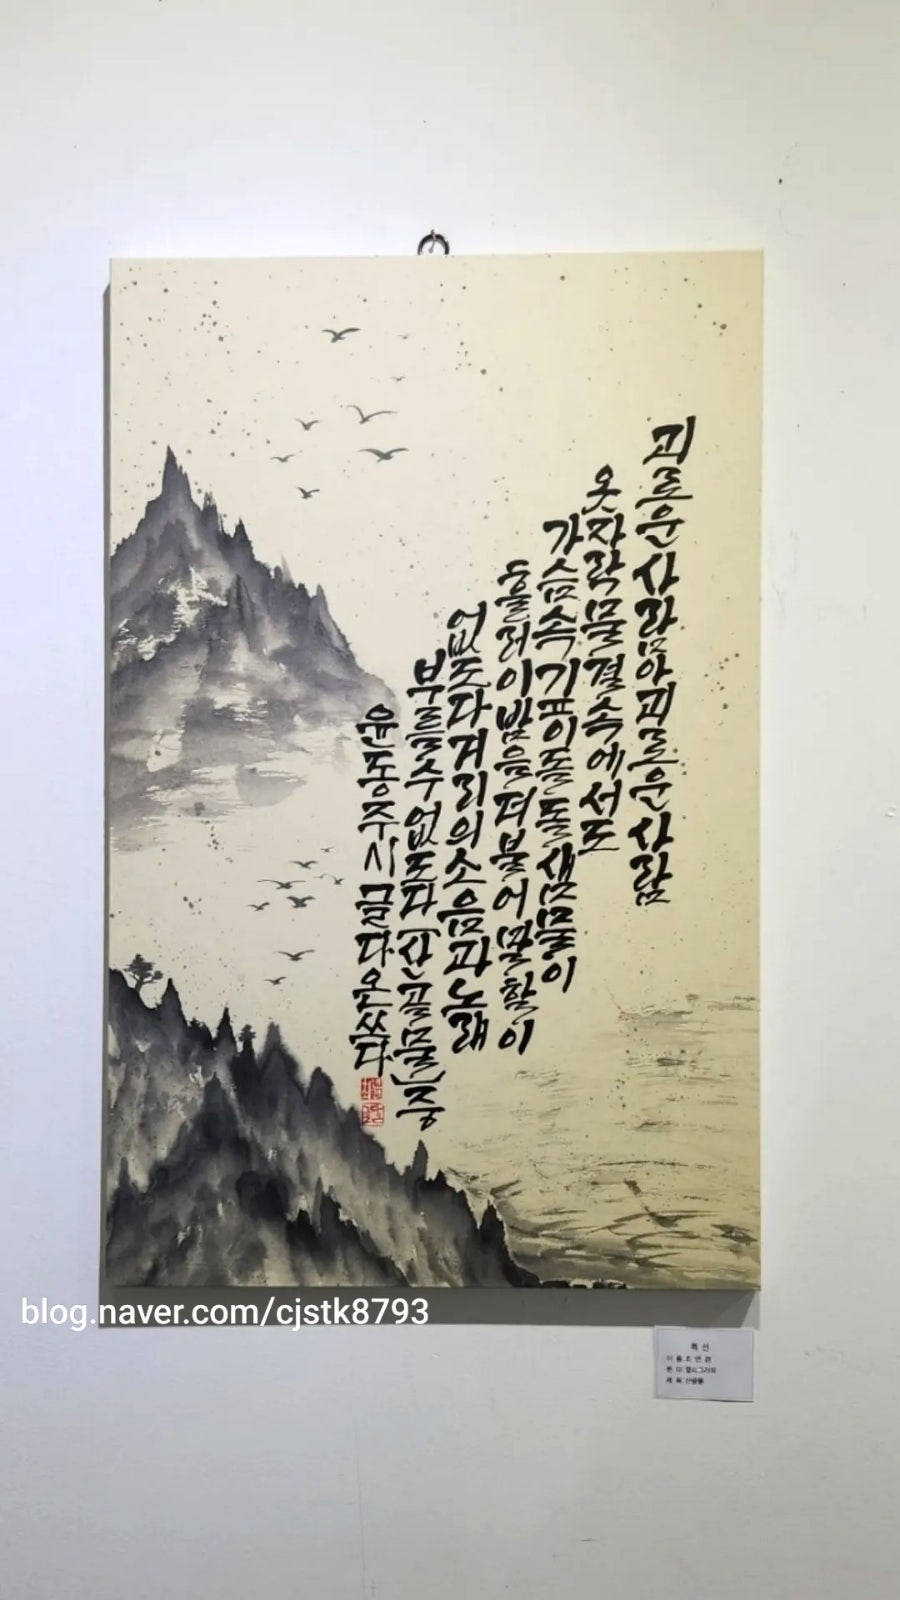 괴로운사람아괴로운사람
옷자락물결속에서도
가슴속기프이돌돌샘물이
흘러이밤을더불어말할이
없도다거리의소음과노래
부를수없도다(산골물)중
윤동주시글다온쓰다
blog.naver.com/cjstk8793
특 선